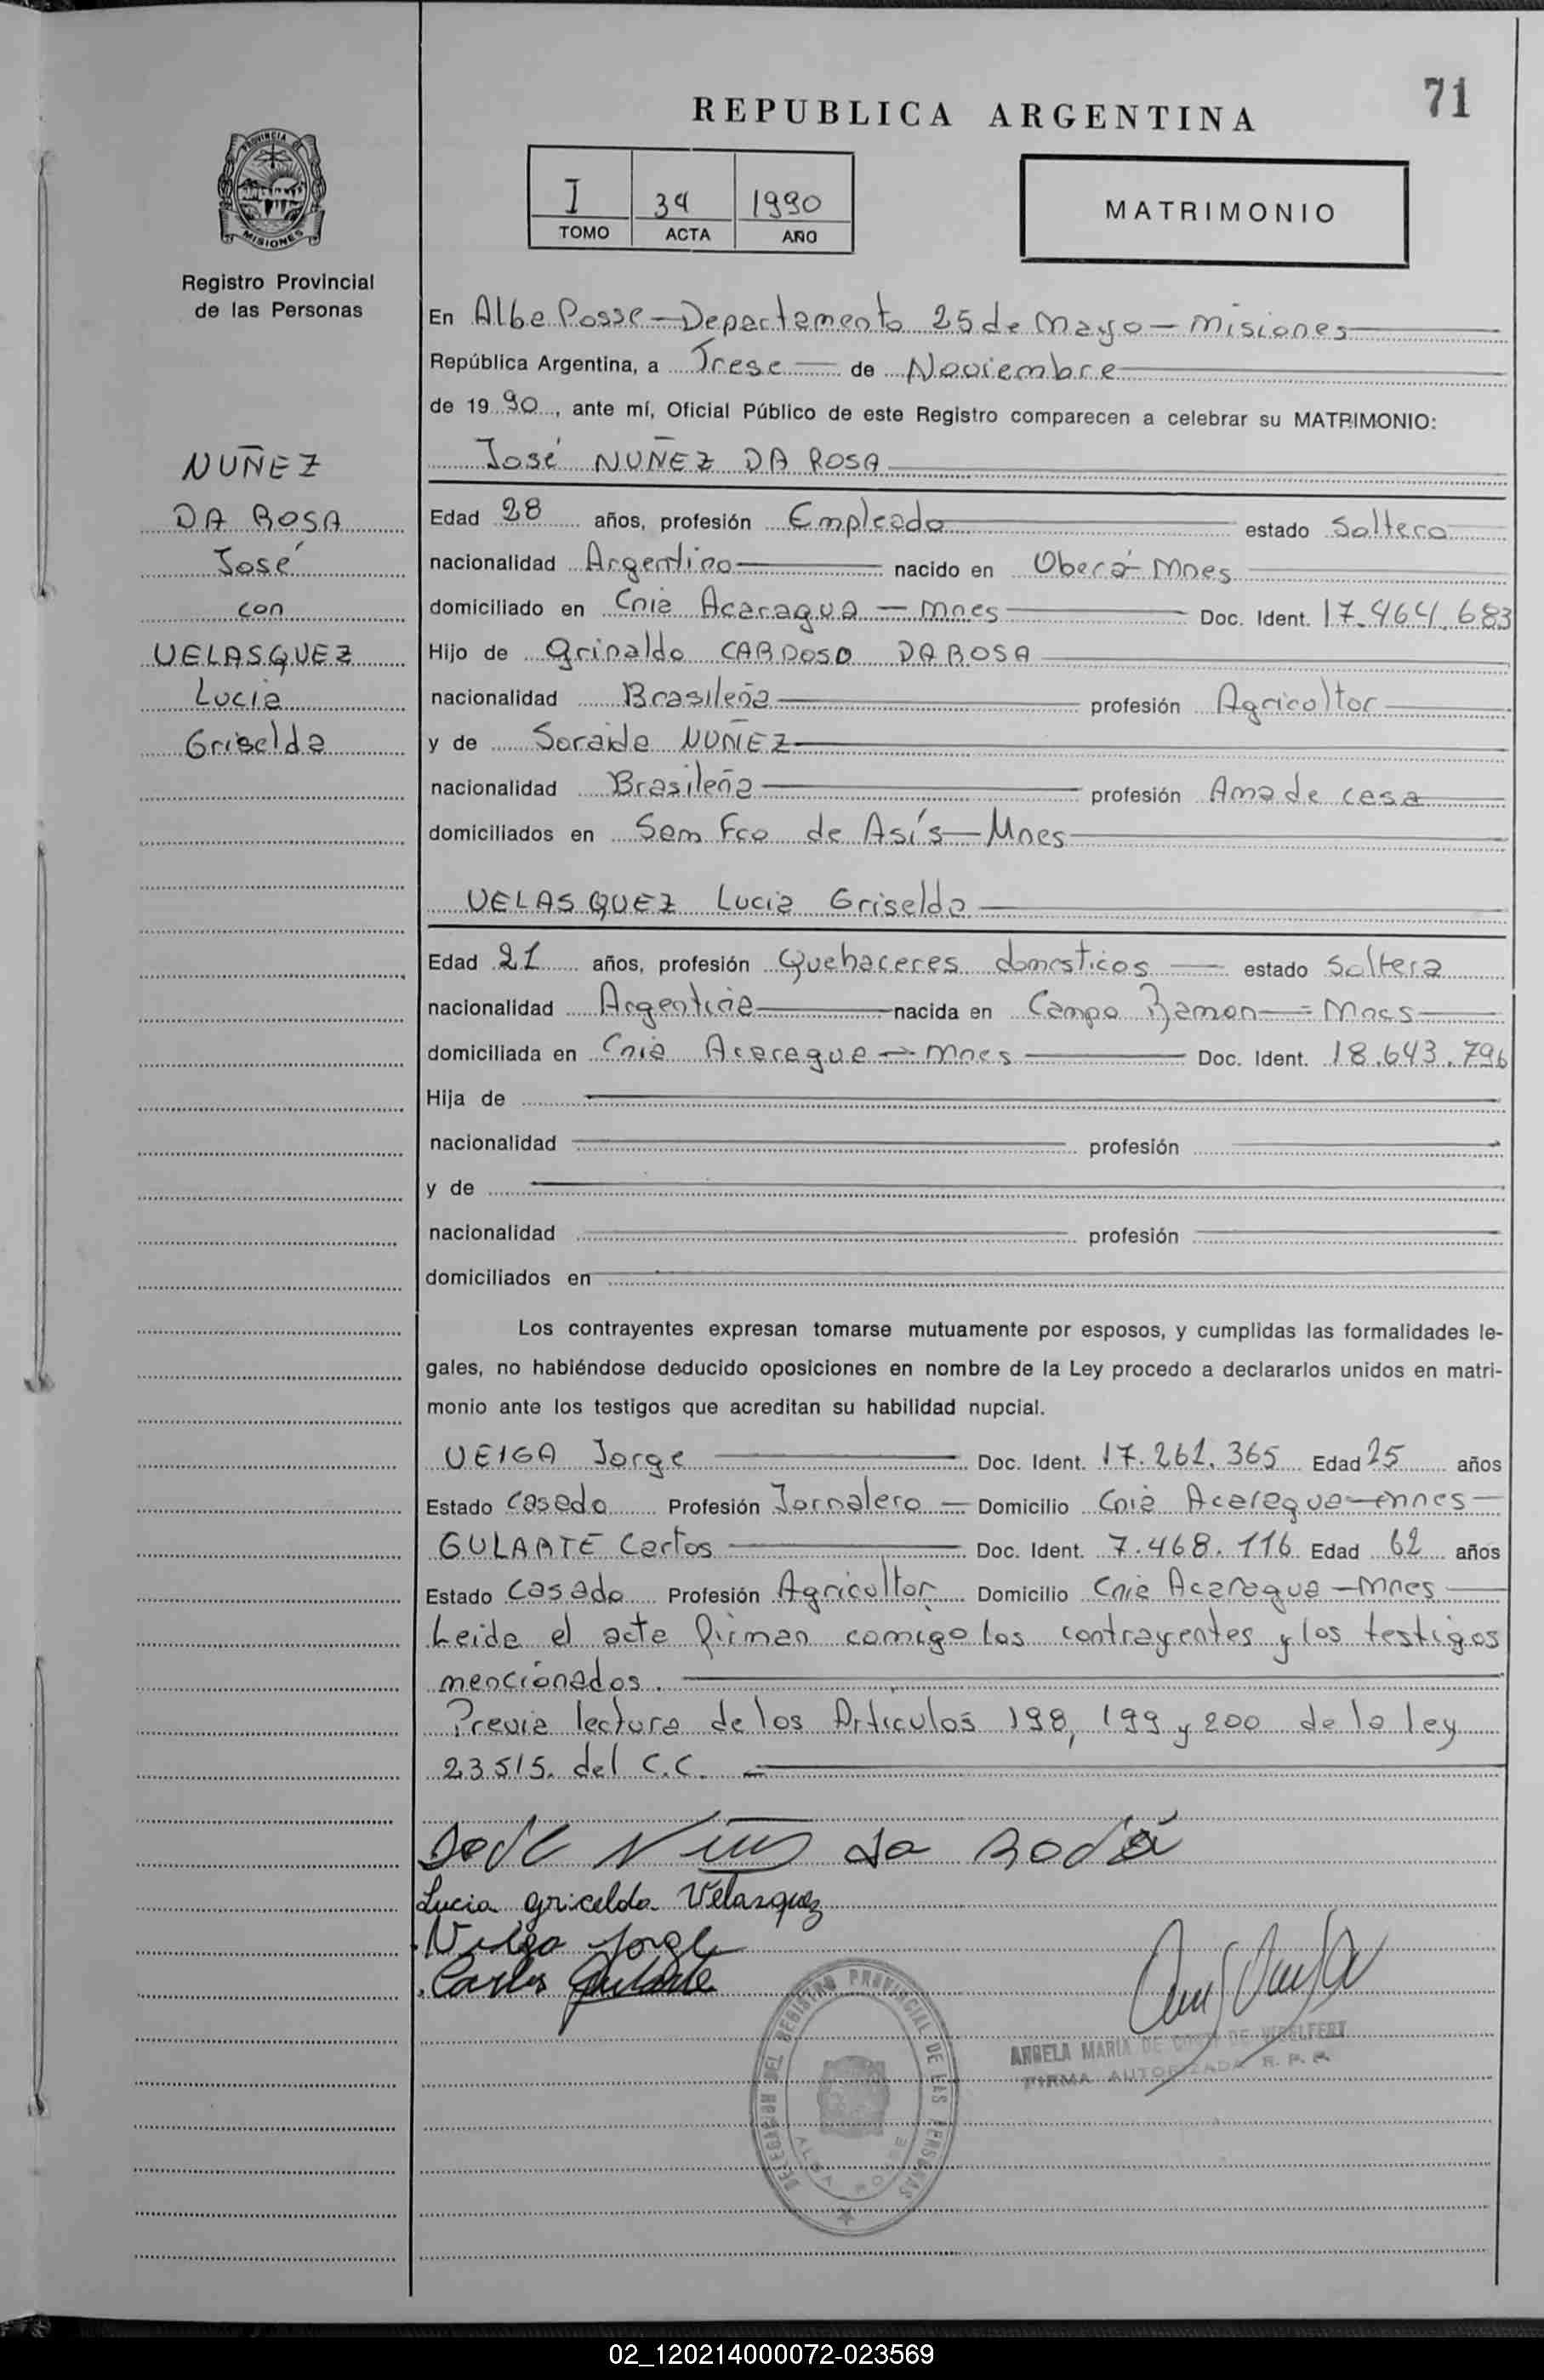 71
REPUBLICA ARGENTINA
PROVINCIA DE
MISIONES
Registro Provincial
de las Personas
I 34 1990
TOMO ACTA AÑO
MATRIMONIO
NUÑEZ
DA ROSA
José
con
VELASQUEZ
Lucia
Griselda
En Alba Posse — Departamento 25 de Mayo — Misiones
República Argentina, a Trese de Noviembre
de 1990, ante mí, Oficial Público de este Registro comparecen a celebrar su MATRIMONIO:
José NUÑEZ DA ROSA
Edad 28 años, profesión Empleado estado Soltero
nacionalidad Argentino nacido en Oberá - Mnes
domiciliado en Cnia Acaragua — Mnes Doc. Ident. 17.464.683
Hijo de Grinaldo CARDOSO DA ROSA
nacionalidad Brasileña profesión Agricultor
y de Soraide NUÑEZ
nacionalidad Brasileña profesión Ama de casa
domiciliados en Sam Fco de Asís — Mnes
VELASQUEZ Lucia Griselda
Edad 21 años, profesión Quehaceres domésticos estado Soltera
nacionalidad Argentina nacida en Campo Ramon — Mnes
domiciliada en Cnia Acaragua — Mnes Doc. Ident. 18.643.796
Hija de
nacionalidad profesión
y de
nacionalidad profesión
domiciliados en
Los contrayentes expresan tomarse mutuamente por esposos, y cumplidas las formalidades le-
gales, no habiéndose deducido oposiciones en nombre de la Ley procedo a declararlos unidos en matri-
monio ante los testigos que acreditan su habilidad nupcial.
VEIGA Jorge Doc. Ident. 17.261.365 Edad 25 años
Estado Casado Profesión Jornalero — Domicilio Cnia Acaragua — Mnes
GULARTE Carlos Doc. Ident. 7.468.116 Edad 62 años
Estado Casado Profesión Agricultor Domicilio Cnia Acaragua — Mnes
Leida el acta firman comigo los contrayentes y los testigos
mencionados.
Previa lectura de los Articulos 198, 199 y 200 de la ley
23515. del C.C.
da Rosa
Lucia Gricelda Velasquez
Veiga Jorge
Carlos Gularte
DELEGACION DEL REGISTRO PROVINCIAL DE LAS PERSONAS
ALBA POSSE
ANGELA MARIA DE
FIRMA AUTORIZADA R. P. P.
02_120214000072-023569